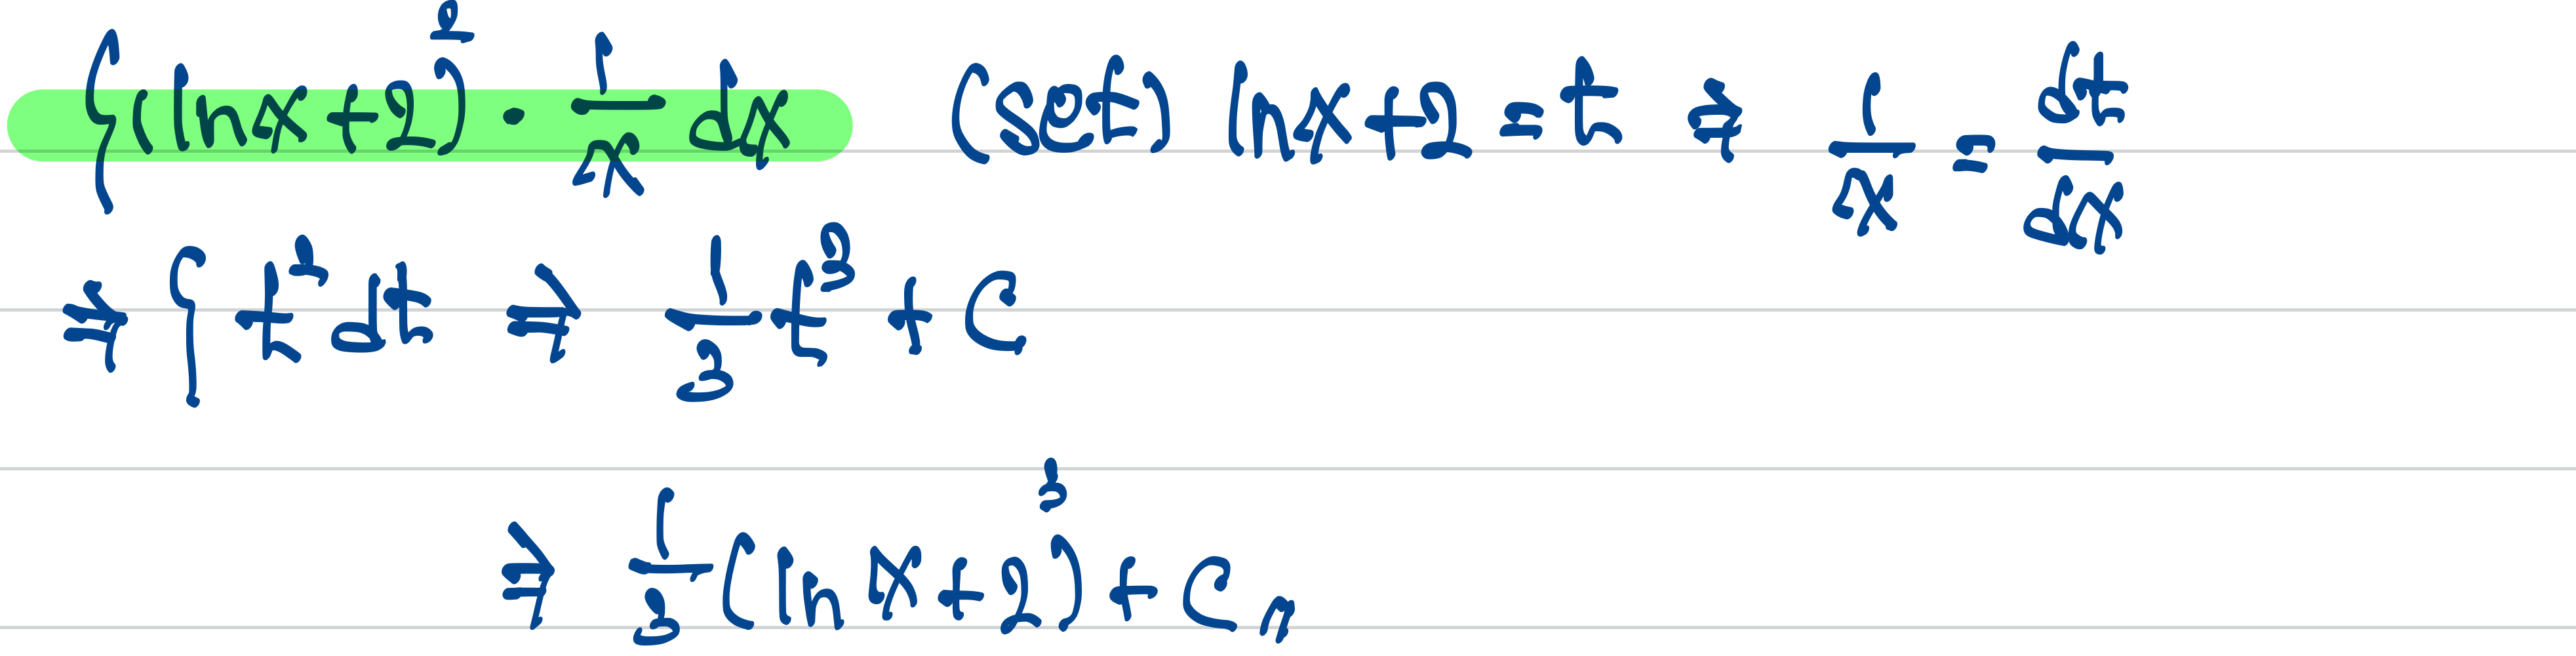 ∫(lnx+2)² · 1/x dx (set) lnx+2 = t ⇒ 1/x = dt/dx
⇒ ∫ t² dt ⇒ 1/3 t³ + C
⇒ 1/3 (ln x+2)³ + C